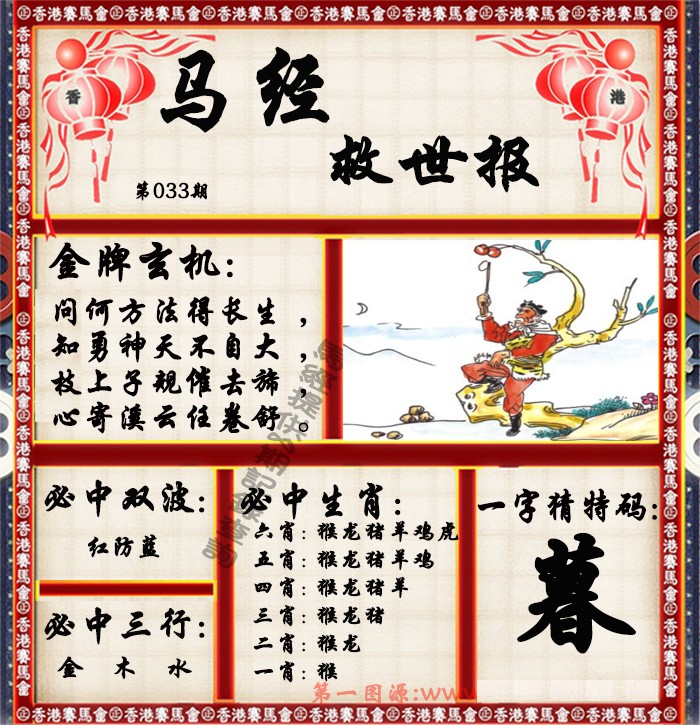 香港賽馬會
香
港
马经
救世报
第033期
金牌玄机：
问何方法得长生，
知勇神天不自大，
枝上子规催去旆，
心寄溪云任卷舒。
必中双波：
红防蓝
必中三行：
金 木 水
必中生肖：
六肖：猴龙猪羊鸡虎
五肖：猴龙猪羊鸡
四肖：猴龙猪羊
三肖：猴龙猪
二肖：猴龙
一肖：猴
一字猜特码：
暮
第一图源:www